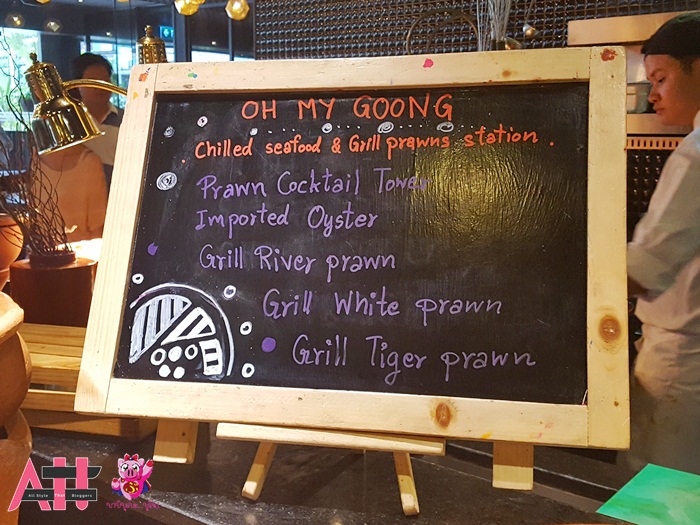 OH MY GOONG
Chilled seafood & Grill prawns station.
Prawn Cocktail Tower
Imported Oyster
Grill River prawn
Grill White prawn
Grill Tiger prawn
All Style That Bloggers